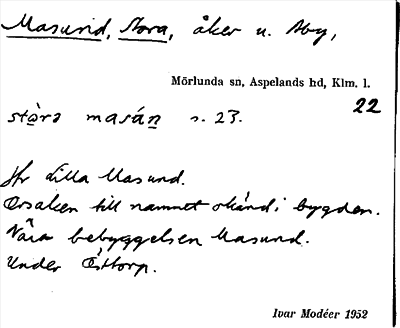 Masund, Stora, åker u. Åby,
Mörlunda sn, Aspelands hd, Klm. l.
22
stòrə masán s. 23.
Jfr Lilla Masund.
Orsaken till namnet okänd i bygden.
Nära bebyggelsen Masund.
Under Östtorp.
Ivar Modéer 1952